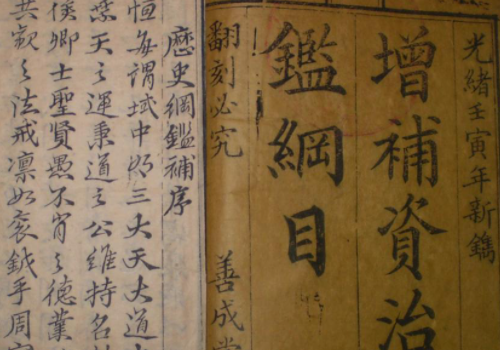 光緒壬寅年新鐫
增補資治
鑑綱目
翻刻必究
善成堂
歷史綱鑑補序
恒每謂域中有三大天大道
天之運秉道之公維持名
侯卿士聖賢愚不肖之德業
共歎之法戒凛如袞鉞乎周